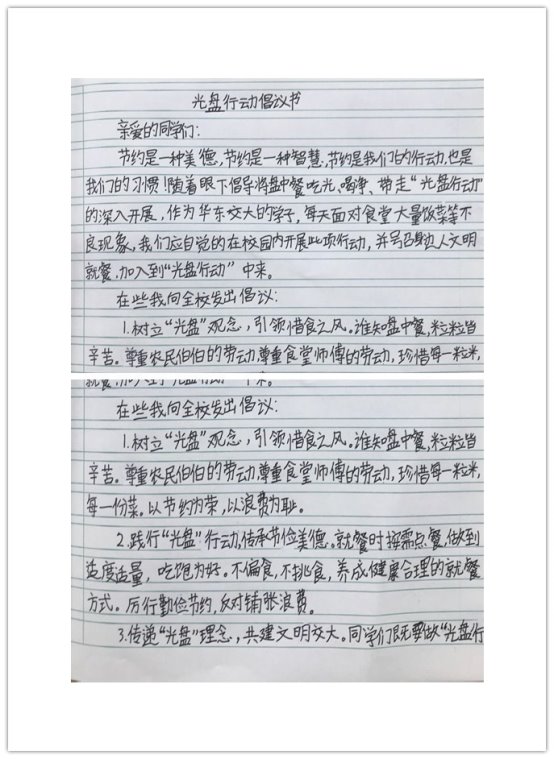 光盘行动倡议书
亲爱的同学们:
节约是一种美德,节约是一种智慧,节约是我们的行动,也是
我们的习惯!随着眼下倡导将盘中餐吃光、喝净、带走“光盘行动”
的深入开展,作为华东交大的学子,每天面对食堂大量饭菜等不
良现象,我们应自觉的在校园内开展此项行动,并号召身边人文明
就餐,加入到“光盘行动”中来。
在些我向全校发出倡议:
1.树立“光盘”观念,引领惜食之风。谁知盘中餐,粒粒皆
辛苦。尊重农民伯伯的劳动尊重食堂师傅的劳动,珍惜每一粒米,
就餐,加入到“光盘行动”中来。
在些我向全校发出倡议:
1.树立“光盘”观念,引领惜食之风。谁知盘中餐,粒粒皆
辛苦。尊重农民伯伯的劳动尊重食堂师傅的劳动,珍惜每一粒米,
每一份菜。以节约为荣,以浪费为耻。
2.践行“光盘”行动,传承节俭美德。就餐时按需点餐,做到
适度适量,吃饱为好。不偏食,不挑食,养成健康合理的就餐
方式。厉行勤俭节约,反对铺张浪费。
3.传递“光盘”理念,共建文明交大。同学们既要做“光盘行